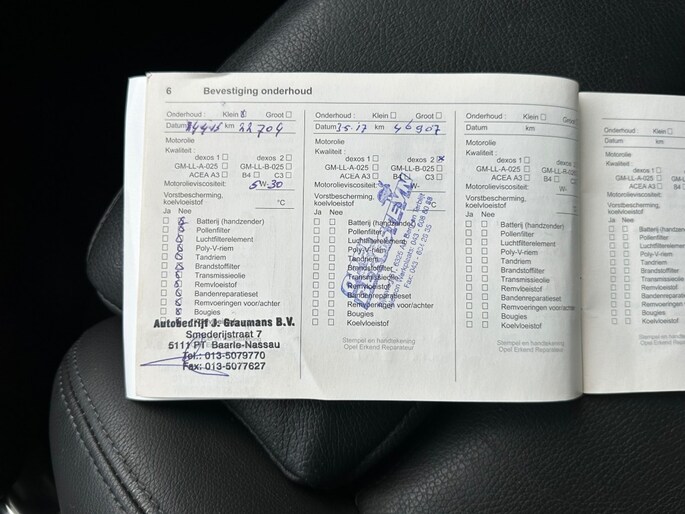 6 Bevestiging onderhoud
Onderhoud : Klein Groot
Datum km 22 704
Motorolie
Kwaliteit :
dexos 1 dexos 2
GM-LL-A-025 GM-LL-B-025
ACEA A3 B4 C3
Motorolieviscositeit: 5W-30
Vorstbescherming,
koelvloeistof °C
Ja Nee
Batterij (handzender)
Pollenfilter
Luchtfilterelement
Poly-V-riem
Tandriem
Brandstoffilter
Transmissieolie
Remvloeistof
Bandenreparatieset
Remvoeringen voor/achter
Bougies
Autobedrijf J. Graumans B.V.
Smederijstraat 7
5111 PT Baarle-Nassau
Tel.: 013-5079770
Fax: 013-5077627
Onderhoud : Klein Groot
Datum 3.5.17 km 46907
Motorolie
Kwaliteit :
dexos 1 dexos 2
GM-LL-A-025 GM-LL-B-025
ACEA A3 B4 C3
Motorolieviscositeit: W-
Vorstbescherming,
koelvloeistof °C
Ja Nee
Batterij (handzender)
Pollenfilter
Luchtfilterelement
Poly-V-riem
Tandriem
Brandstoffilter
Transmissieolie
Remvloeistof
Bandenreparatieset
Remvoeringen voor/achter
Bougies
Koelvloeistof
Stempel en handtekening
Opel Erkend Reparateur
Onderhoud : Klein Groot
Datum km
Motorolie
Kwaliteit :
dexos 1 dexos 2
GM-LL-A-025 GM-LL-B-025
ACEA A3 B4 C3
Motorolieviscositeit: W-
Vorstbescherming,
koelvloeistof °C
Ja Nee
Batterij (handzender)
Pollenfilter
Luchtfilterelement
Poly-V-riem
Tandriem
Brandstoffilter
Transmissieolie
Remvloeistof
Bandenreparatieset
Remvoeringen voor/achter
Bougies
Koelvloeistof
Stempel en handtekening
Opel Erkend Reparateur
Onderhoud : Klein
Datum: km
Motorolie
Kwaliteit :
dexos 1
GM-LL-A-025
ACEA A3
Motorolieviscositeit:
Vorstbescherming,
koelvloeistof
Ja Nee
Batterij (handzender)
Pollenfilter
Luchtfilterelement
Poly-V-riem
Tandriem
Brandstoffilter
Transmissieolie
Remvloeistof
Bandenreparatieset
Remvoeringen
Bougies
Koelvloeistof
Stempel en handtekening
Opel Erkend Reparateur